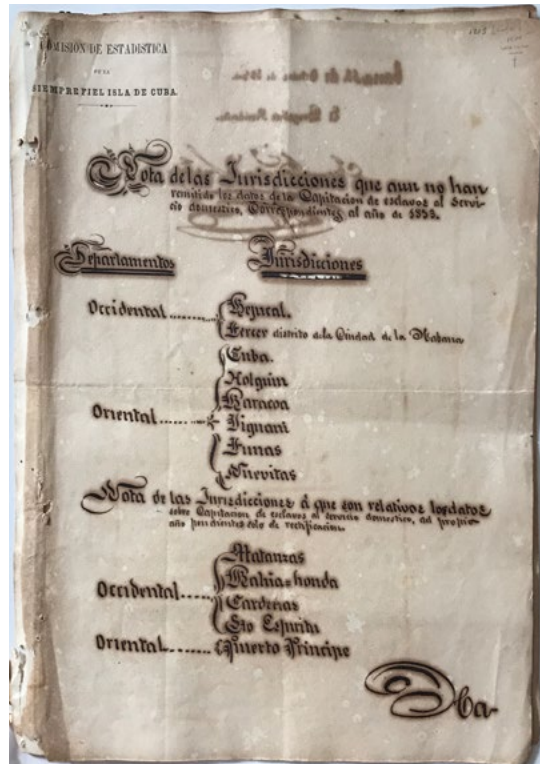 COMISION DE ESTADISTICA
DE LA
SIEMPRE FIEL ISLA DE CUBA.
Nota de las Jurisdicciones que aun no han
remitido los datos de la Capitacion de esclavos al Servi-
cio domestico, Correspondientes al año de 1858.
Departamentos
Jurisdicciones
Occidental
Bejucal.
Tercer distrito de la Ciudad de la Habana
Cuba.
Holguin
Baracoa
Oriental
Jiguani
Tunas
Nuevitas
Nota de las Jurisdicciones á que son relativos los datos
sobre Capitacion de esclavos al servicio domestico, del propio
año pendientes solo de rectificacion.
Matanzas
Bahia=honda
Occidental
Cardenas
Sto Espiritu
Oriental
Puerto Principe